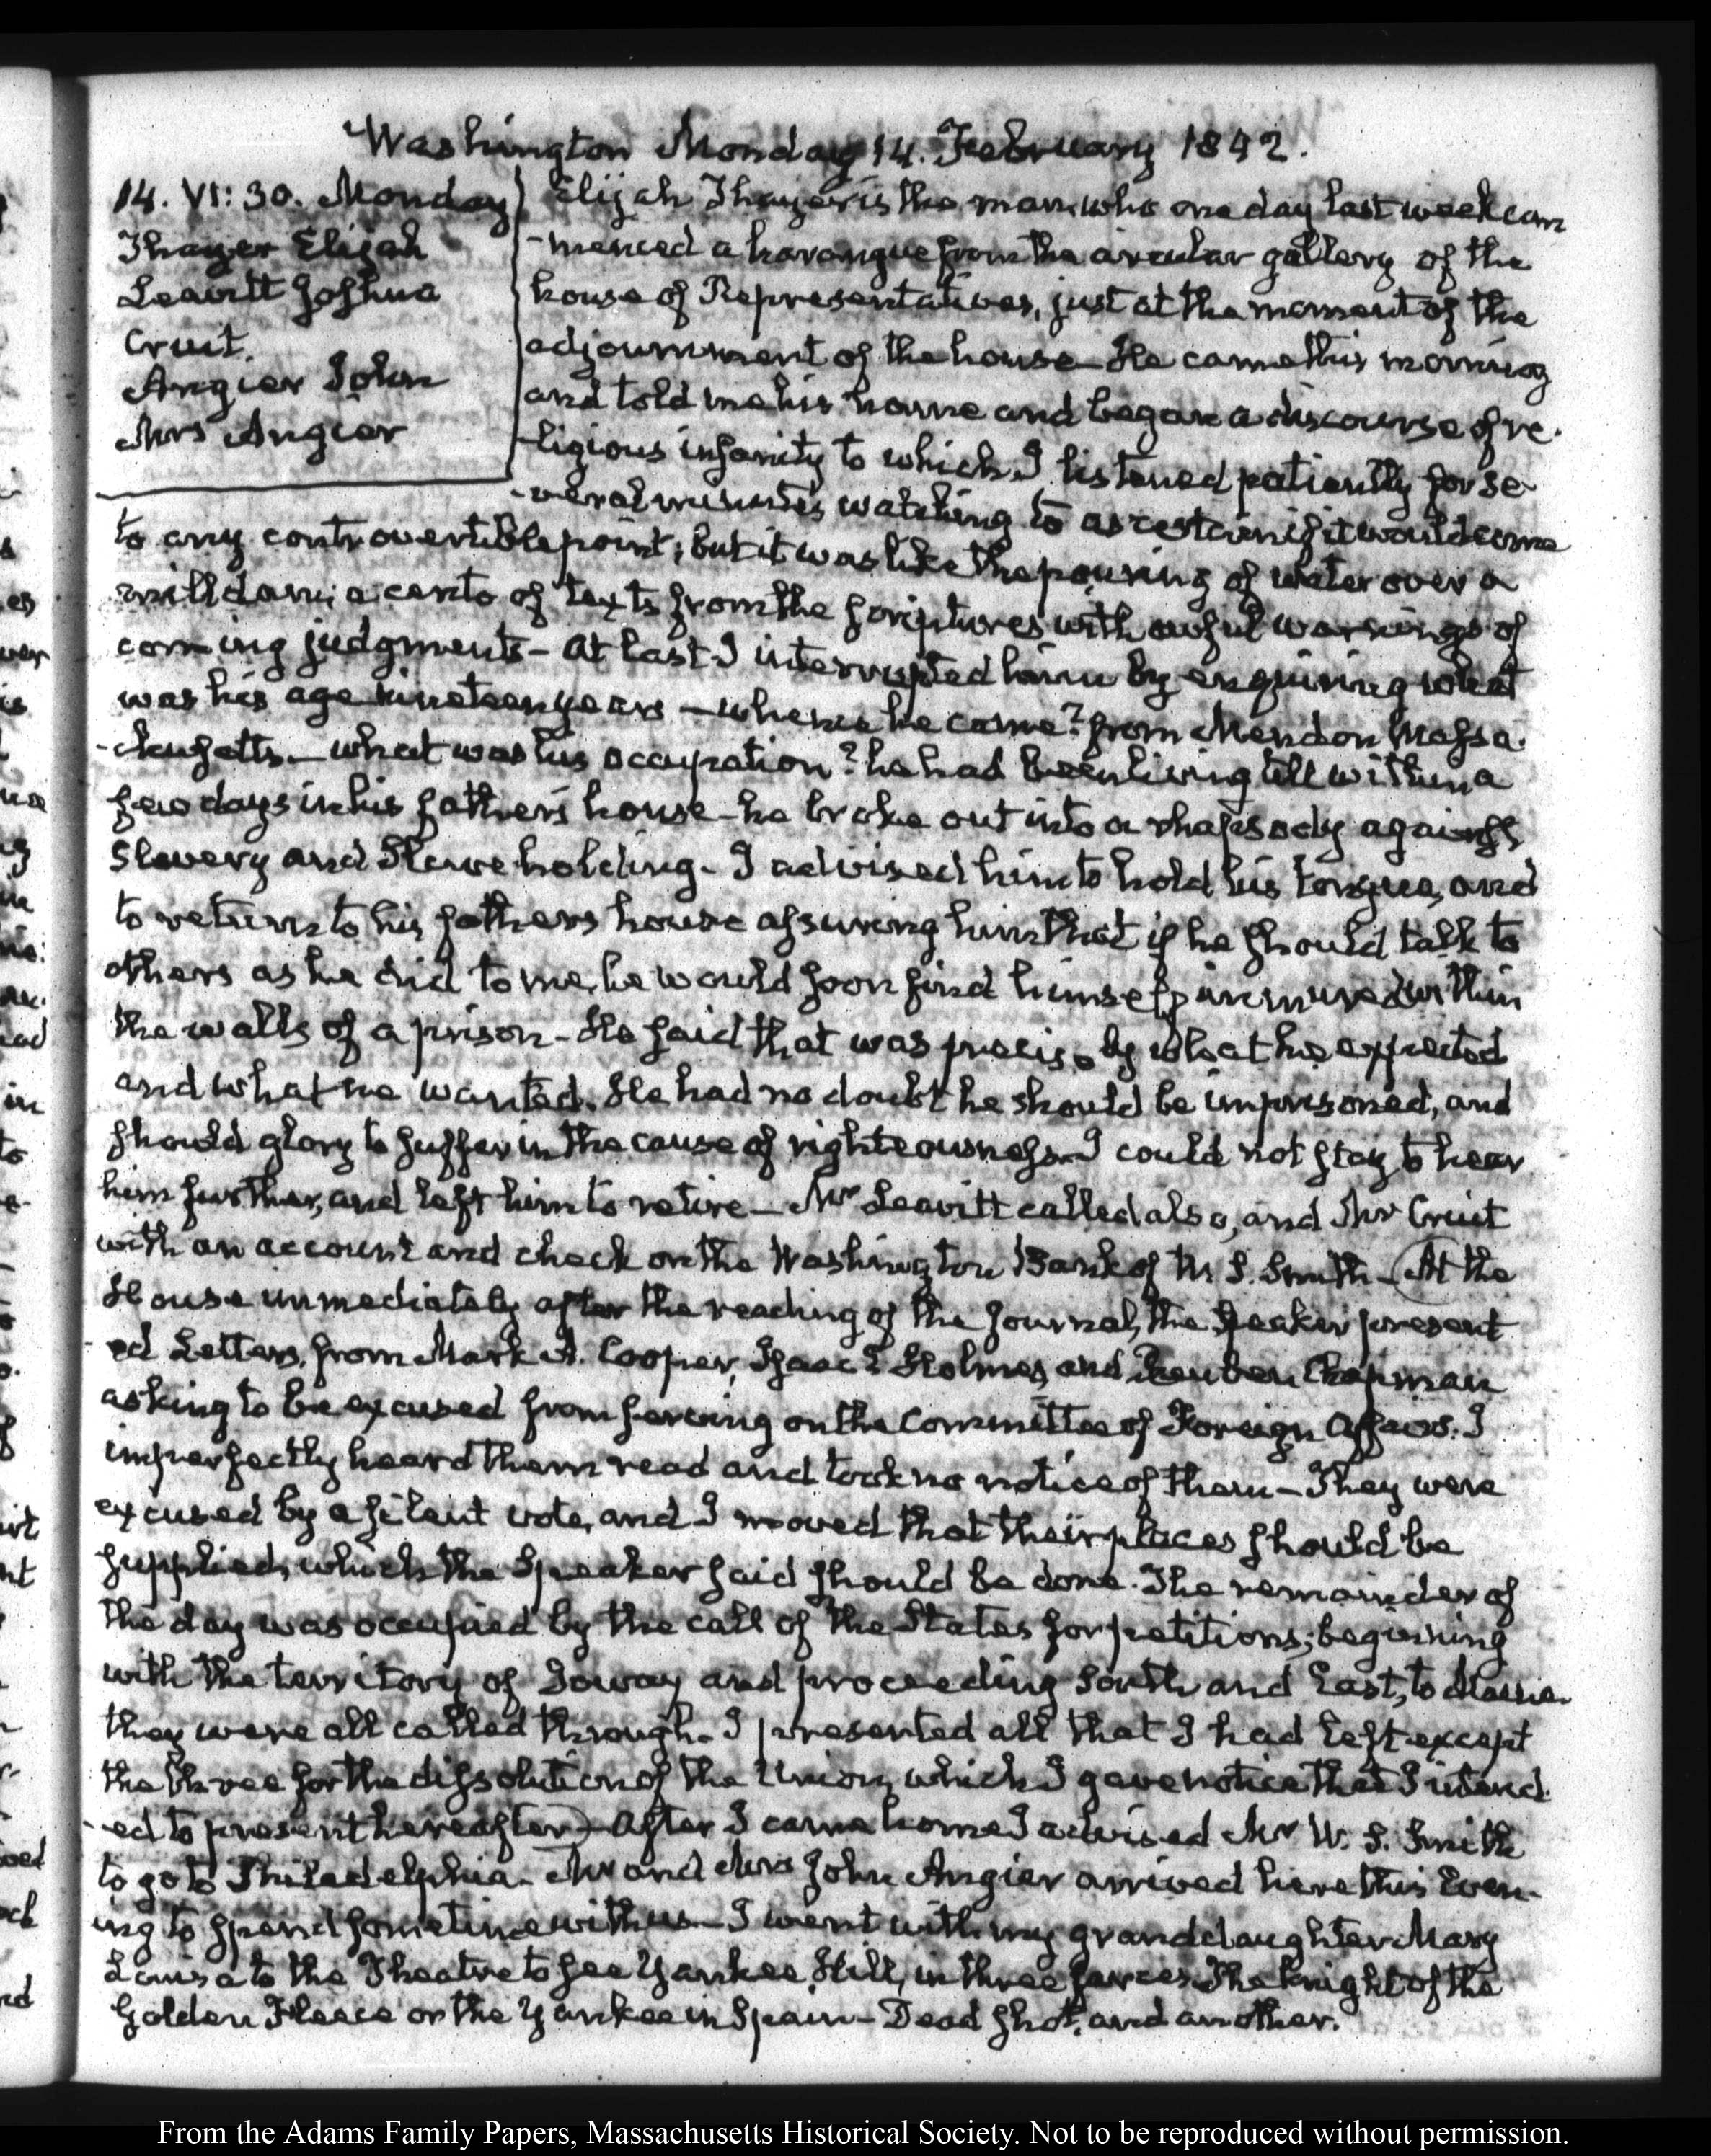 Washington Monday 14. February 1842.
14. VI:30. Monday
Thayer Elijah
Leavitt Joshua
Cruit.
Angier John
Mrs Angier
Elijah Thayer is the man, who one day last week com
-menced a harangue from the circular gallery of the
house of Representatives, just at the moment of the
adjournment of the house— He came this morning
and told me his name and began a discourse of re-
-ligious insanity to which I listened patiently for se-
-veral minutes watching to ascertain if it would come
to any controvertible point; but it was like the pouring of water over a
milldam; a cento of texts from the scriptures with awful warnings of
coming judgments— At last I interrupted him by enquiring what
was his age nineteen years—whence he came? from Mendon Massa-
-chusetts.—what was his occupation? he had been living till within a
few days in his father's house—he broke out into a rhapsody against
Slavery and Slave holding. I advised him to hold his tongue, and
to return to his fathers house assuring him that if he should talk to
others as he did to me, he would soon find himself immured within
the walls of a prison— He said that was precisely what he expected
and what he wanted. He had no doubt he should be imprisoned, and
should glory to suffer in the cause of righteousness. I could not stay to hear
him further, and left him to retire— Mr Leavitt called also, and Mr Cruit
with an account and check on the Washington Bank of W. S. Smith—(At the
House immediately after the reading of the Journal, the Speaker present
-ed Letters, from Mark A. Cooper, Isaac E Holmes, and Reuben Chapman
asking to be excused from serving on the Committee of Foreign Affairs. I
imperfectly heard them read and took no notice of them— They were
excused by a silent vote, and I moved that their places should be
supplied, which the Speaker said should be done. The remainder of
the day was occupied by the call of the States for petitions; beginning
with the territory of Ioway and proceeding South and East, to Maine.
they were all called through. I presented all that I had left except
the three for the dissolution of the Union, which I gave notice that I intend-
-ed to present hereafter)—After I came home I advised Mr W. S. Smith
to go to Philadelphia. Mr and Mrs John Angier arrived here this Even-
ing to spend some time with us— I went with my granddaughter Mary
Louisa to the Theatre to see Yankee Hill, in three farces. The knight of the
Golden Fleece or the Yankee in Spain— Dead Shot, and another.
From the Adams Family Papers, Massachusetts Historical Society. Not to be reproduced without permission.